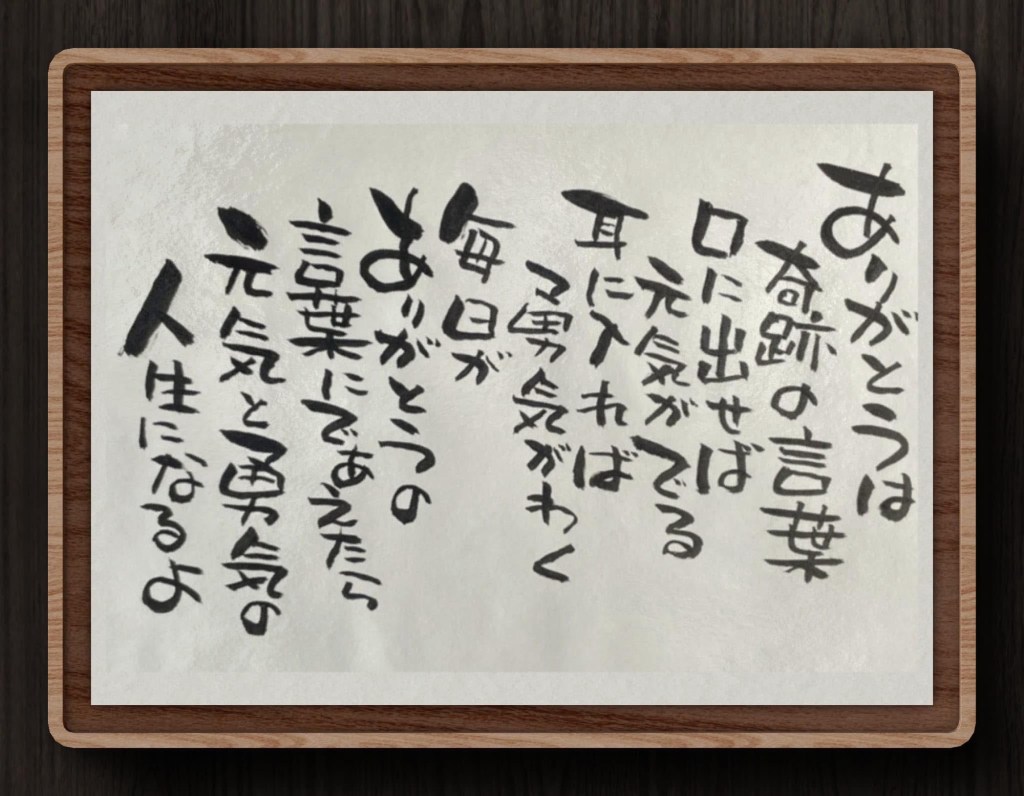 ありがとうは
奇跡の言葉
口に出せば
元気がでる
耳に入れば
勇気がわく
毎日が
ありがとうの
言葉にであえたら
元気と勇気の
人生になるよ